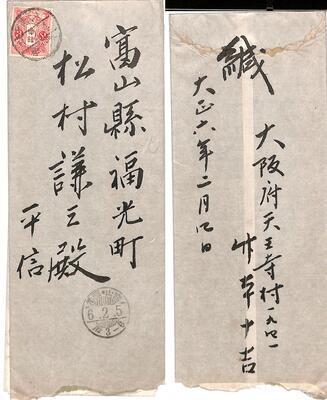 富山縣福光町
松村謙三殿
平信
6.2.5
緘
大阪府天王寺村一九四一
竹本十吉
大正六年二月四日